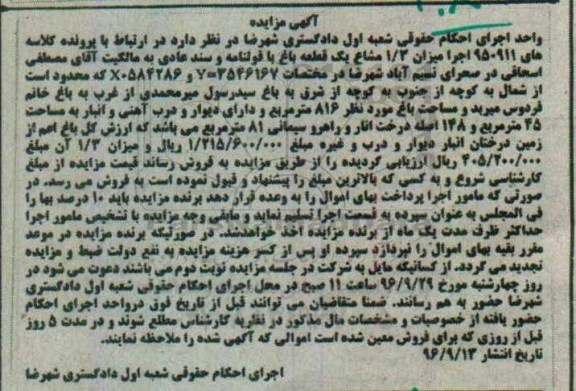 آگهی مزایده
واحد اجرای احکام حقوقی شعبه اول دادگستری شهرضا در نظر دارد در ارتباط با پرونده کلاسه
های ۹۵۰۹۱۱ اجرا میزان ۱/۳ مشاع یک قطعه باغ با قولنامه و سند عادی به مالکیت آقای مصطفی
اسحاقی در صحرای نسیم آباد شهرضا در مختصات Y=۳۵۴۶۱۶۷ و X=۵۸۴۲۸۶ که محدود است
از شمال به کوچه از جنوب به کوچه از شرق به باغ سیدرسول میرمحمدی از غرب به باغ خانم
فردوس میرید و مساحت باغ مورد نظر ۸۱۶ مترمربع و دارای دیوار و درب آهنی و انبار به مساحت
۴۵ مترمربع و ۱۴۸ اصله درخت انار و راهرو سیمانی ۸۱ مترمربع می باشد که ارزش کل باغ اعم از
زمین درختان انبار دیوار و درب و غیره مبلغ ۱/۲۱۵/۶۰۰/۰۰۰ ریال و میزان ۱/۳ آن مبلغ
۴۰۵/۲۰۰/۰۰۰ ریال ارزیابی گردیده را از طریق مزایده به فروش رساند قیمت مزایده از مبلغ
کارشناسی شروع و به کسی که بالاترین مبلغ را پیشنهاد و قبول نموده است به فروش می رسد. در
صورتی که مامور اجرا پرداخت بهای اموال را به وعده قرار دهد برنده مزایده باید ۱۰ درصد بها را
فی المجلس به عنوان سپرده به قسمت اجرا تسلیم نماید و مابقی وجه مزایده با تشخیص مامور اجرا
حداکثر ظرف مدت یک ماه از برنده مزایده اخذ خواهدشد. در صورتیکه برنده مزایده در موعد
مقرر بقیه بهای اموال را نپردازد سپرده او پس از کسر هزینه مزایده به نفع دولت ضبط و مزایده
تجدید می گردد. از کسانیکه مایل به شرکت در جلسه مزایده نوبت دوم می باشند دعوت می شود در
روز چهارشنبه مورخ ۹۶/۹/۲۹ ساعت ۱۱ صبح در محل اجرای احکام حقوقی شعبه اول دادگستری
شهرضا حضور به هم رسانند. ضمنا متقاضیان می توانند قبل از تاریخ فوق درواحد اجرای احکام
حضور یافته از خصوصیات و مشخصات مال مذکور در نظریه کارشناس مطلع شوند و در مدت ۵ روز
قبل از روزی که برای فروش معین شده است اموالی که آگهی شده را ملاحظه نمایند.
تاریخ انتشار ۹۶/۹/۱۳
اجرای احکام حقوقی شعبه اول دادگستری شهرضا